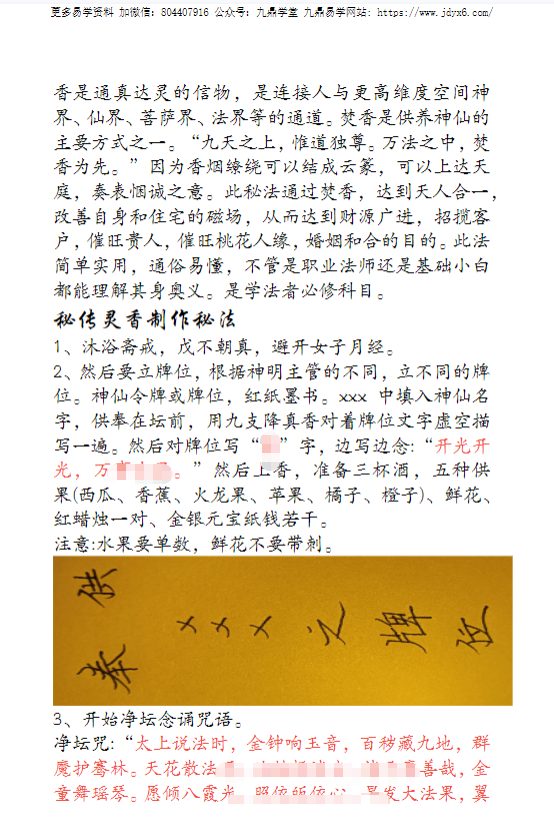 更多易学资料 加微信：804407916 公众号：九鼎学堂 九鼎易学网站：https://www.jdyx6.com/
香是通真达灵的信物，是连接人与更高维度空间神
界、仙界、菩萨界、法界等的通道。焚香是供养神仙的
主要方式之一。“九天之上，惟道独尊。万法之中，焚
香为先。”因为香烟缭绕可以结成云篆，可以上达天
庭，奏表悃诚之意。此秘法通过焚香，达到天人合一，
改善自身和住宅的磁场，从而达到财源广进，招揽客
户，催旺贵人，催旺桃花人缘，婚姻和合的目的。此法
简单实用，通俗易懂，不管是职业法师还是基础小白
都能理解其身奥义。是学法者必修科目。
秘传灵香制作秘法
1、沐浴斋戒，戊不朝真，避开女子月经。
2、然后要立牌位，根据神明主管的不同，立不同的牌
位。神仙令牌或牌位，红纸墨书。xxx 中填入神仙名
字，供奉在坛前，用九支降真香对着牌位文字虚空描
写一遍。然后对牌位写“”字，边写边念：“开光开
光，万。”然后上香，准备三杯酒，五种供
果(西瓜、香蕉、火龙果、苹果、橘子、橙子)、鲜花、
红蜡烛一对、金银元宝纸钱若干。
注意:水果要单数，鲜花不要带刺。
供奉 xxx 之牌位
3、开始净坛念诵咒语。
净坛咒：“太上说法时，金钟响玉音，百秽藏九地，群
魔护骞林。天花散法善哉，金
童舞瑶琴。愿倾八霞光，照依皈依心，早发大法果，翼